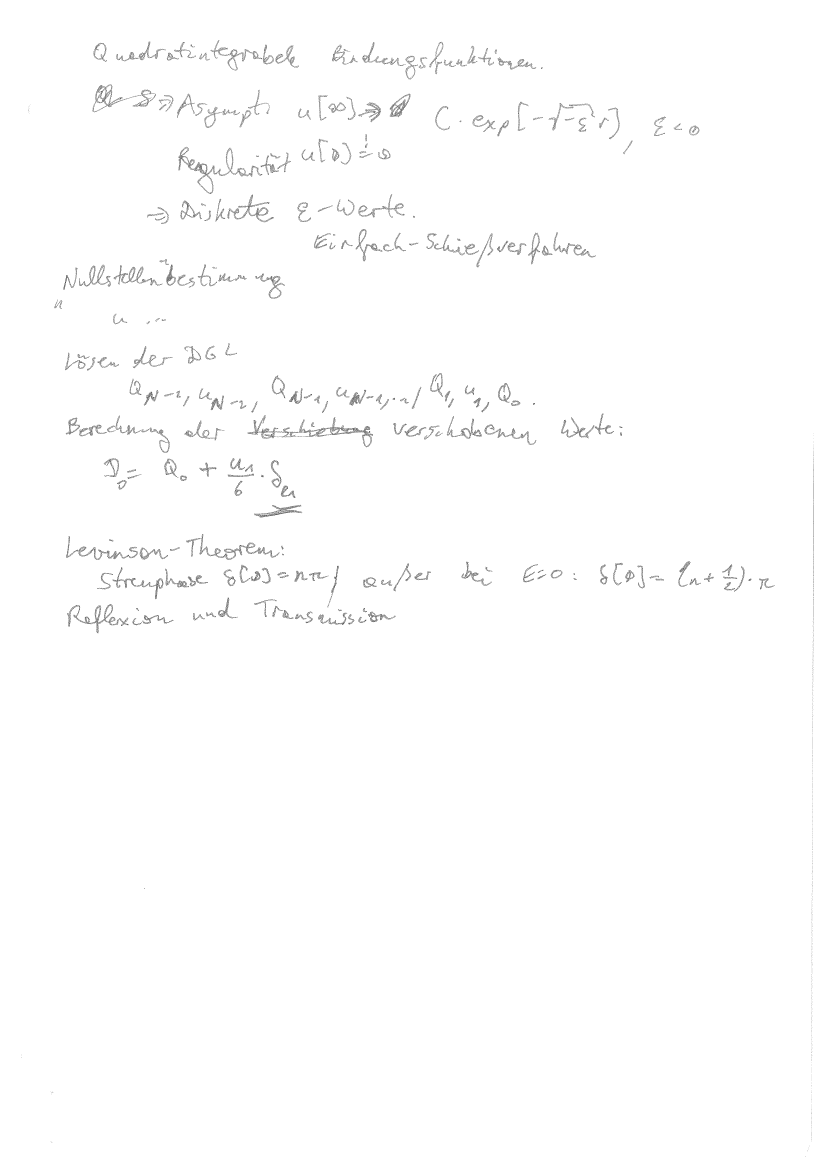 Quadratintegrabele Bindungsfunktionen.
⇒ Asympt: u[∞] → C · exp[-√-ε r], ε < 0
Regularität u[0] != 0
⇒ Diskrete ε-Werte.
Einfach-Schießverfahren
Nullstellenbestimmung
u ...
Lösen der DGL
Q_N-2, u_N-2, Q_N-1, u_N-1, .., Q_1, u_1, Q_0.
Berechnung der Verschiebung verschobenen Werte:
D_0 = Q_0 + u_1/6 · δ_l1
Levinson-Theorem:
Streuphase δ[0] = nπ, außer bei E=0: δ[0] = (n + 1/2) · π
Reflexion und Transmission